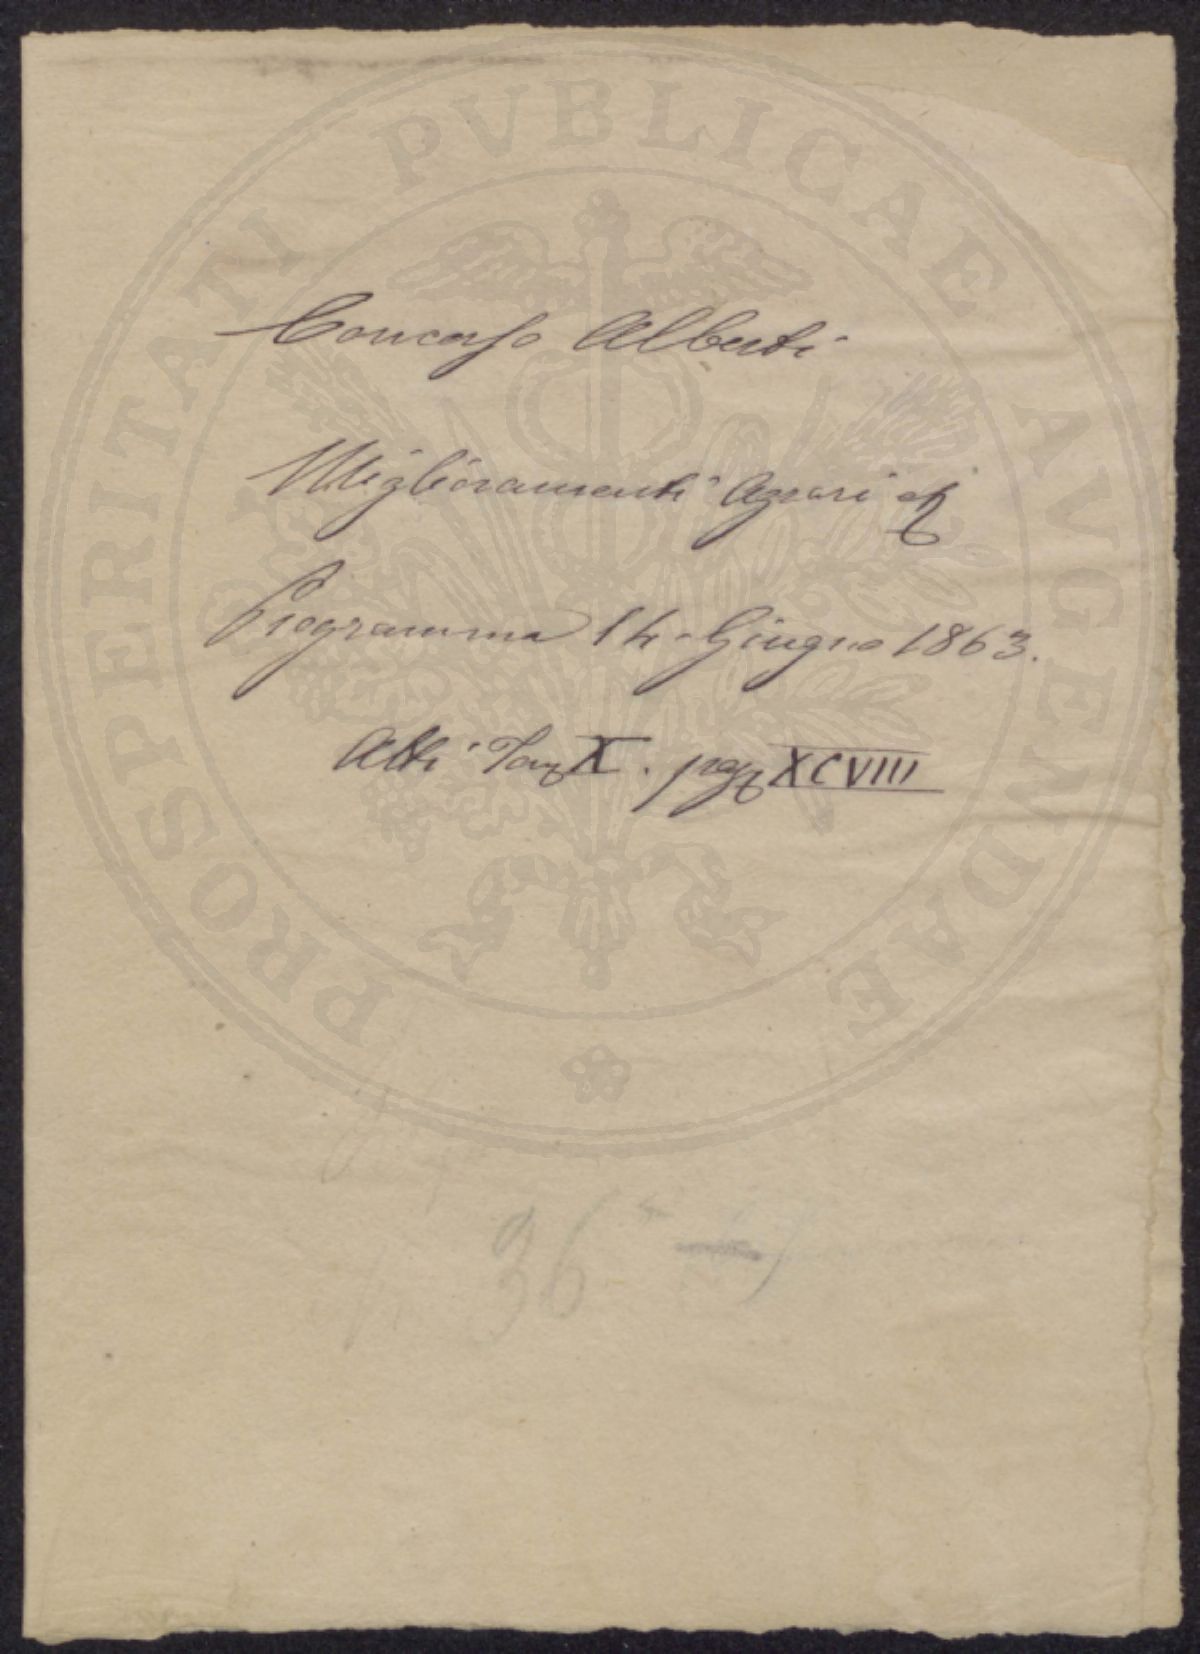 PROSPERITATI PVBLICAE AVGENDAE
Concorso Alberti
Miglioramenti Agrari
Programma 14 Giugno 1863.
Atti Tom X. pag XCVIII
36